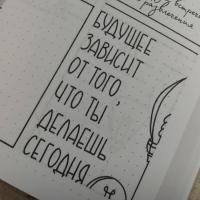 встреч
развлечения
БУДУЩЕЕ
ЗАВИСИТ
ОТ ТОГО,
ЧТО ТЫ
ДЕЛАЕШЬ
СЕГОДНЯ